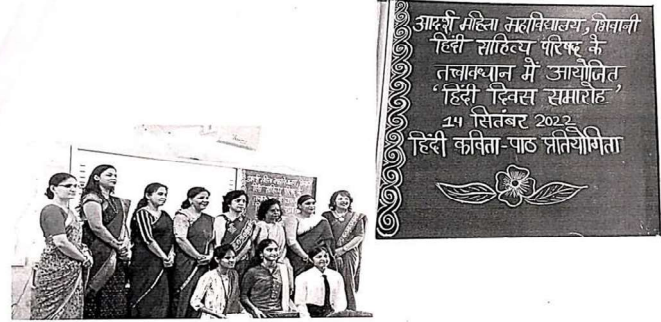 आदर्श महिला महाविद्यालय, भिवानी
हिंदी साहित्य परिषद के
तत्त्वावधान में आयोजित
'हिंदी दिवस समारोह'
14 सितंबर 2022
हिंदी कविता-पाठ प्रतियोगिता